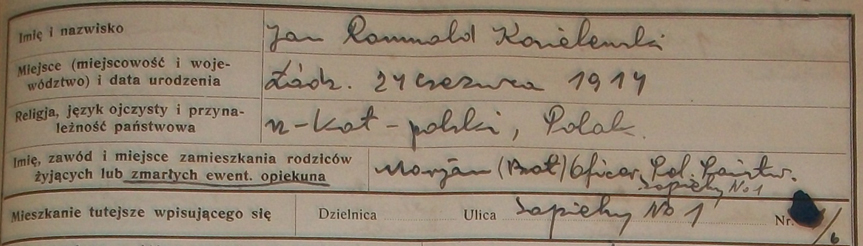 Imię i nazwisko Jan Romuald Kozielewski
Miejsce (miejscowość i woje-
wództwo) i data urodzenia Łódź. 24 czerwca 1914
Religja, język ojczysty i przyna-
leżność państwowa rz-kat-polski, Polak.
Imię, zawód i miejsce zamieszkania rodziców
żyjących lub zmarłych ewent. opiekuna Marjan (Brat) Oficer Pol. Państw.
Sapiehy No 1
Mieszkanie tutejsze wpisującego się Dzielnica Ulica Sapiehy No 1 Nr. /6